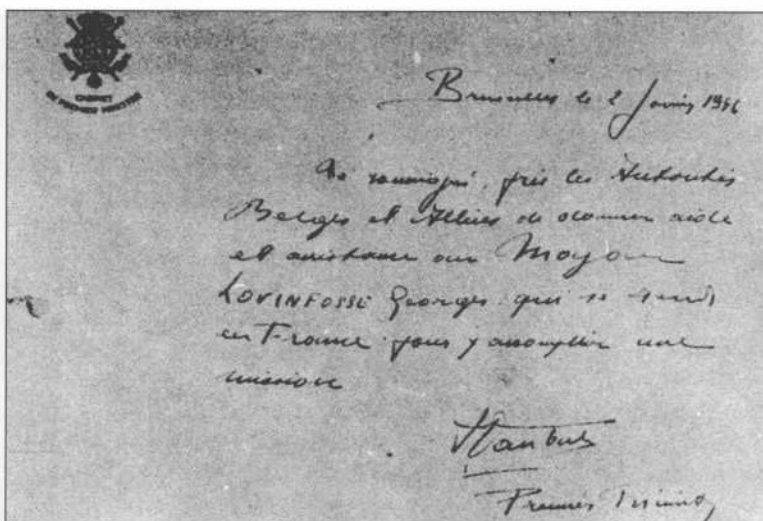 CABINET
DU PREMIER MINISTRE
Bruxelles le 2
Le soussigné, prie les Autorités
Belges et Alliées de donner aide
et assistance au Major
LOVINFOSSE Georges qui se rend
en France pour y accomplir une
mission
Premier Ministre